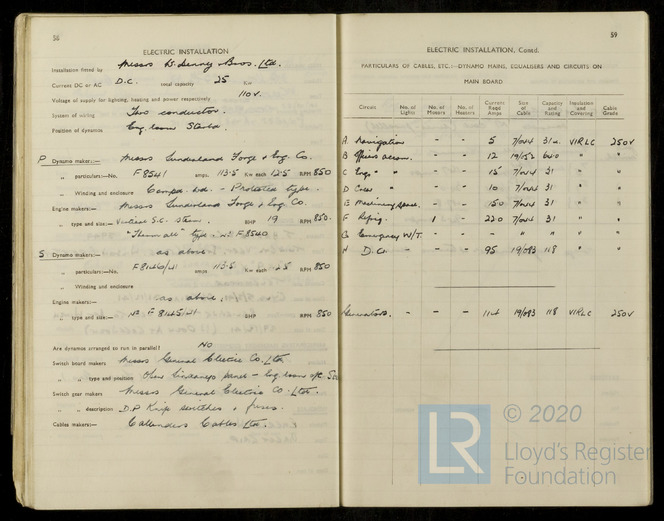 58
ELECTRIC INSTALLATION
Installation fitted by Messrs W. Denny & Bros. Ltd.
Current DC or AC D.C. total capacity 25 Kw
Voltage of supply for lighting, heating and power respectively 110 v.
System of wiring Two conductor.
Position of dynamos Eng. room Starbd.
P Dynamo maker:— Messrs Sunderland Forge & Eng. Co.
„ particulars:—No. F8541 amps 113.5 Kw each 12.5 RPM 850
„ Winding and enclosure Compd. wd. - Protected type.
Engine makers:— Messrs Sunderland Forge & Eng. Co.
„ type and size:— Vertical S.C. steam. BHP 19 RPM 850.
type No F8540
S Dynamo makers:— as above.
„ particulars:—No. amps 113.5 Kw each 12.5 RPM 850
„ Winding and enclosure
Engine makers:— as above,
„ type and size:— No BHP RPM 850
Are dynamos arranged to run in parallel? NO
Switch board makers Messrs General Electric Co. Ltd.
„ „ type and position panel - Eng. room
Switch gear makers Messrs General Electric Co. Ltd.
„ „ description D.P. Knife switches & fuses.
Cables makers:— Callenders Cables Ltd.
59
ELECTRIC INSTALLATION, Contd.
PARTICULARS OF CABLES, ETC.:—DYNAMO MAINS, EQUALISERS AND CIRCUITS ON
MAIN BOARD
Circuit No. of Lights No. of Motors No. of Heaters Current Reqd Amps Size of Cable Capacity and Rating Insulation and Covering Cable Grade
A Navigation - - 5 7/044 31 VIRLC 250V
B Officers accom. - - 12 " "
C Engs " - - 15 7/044 31 " "
D Crews " - - 10 7/044 31 " "
E Machinery space. - - 7/044 31 " "
F Refrig. 1 - 7/044 31 " "
G Emergency W/T. - - - " " " "
H - - 95 19/083 118 " "
Generators. - - - 114 19/083 118 VIRLC 250V
© 2020
LR
Lloyd's Register
Foundation